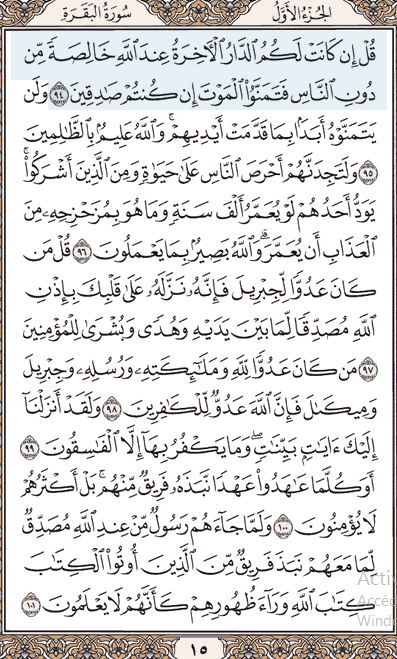 سُورَةُ البَقَرَةِ الجُزءُ الأَوَّلُ
قُلۡ إِن كَانَتۡ لَكُمُ ٱلدَّارُ ٱلۡأٓخِرَةُ عِندَ ٱللَّهِ خَالِصَةٗ مِّن
دُونِ ٱلنَّاسِ فَتَمَنَّوُاْ ٱلۡمَوۡتَ إِن كُنتُمۡ صَٰدِقِينَ ٩٤ وَلَن
يَتَمَنَّوۡهُ أَبَدَۢا بِمَا قَدَّمَتۡ أَيۡدِيهِمۡۚ وَٱللَّهُ عَلِيمُۢ بِٱلظَّٰلِمِينَ
٩٥ وَلَتَجِدَنَّهُمۡ أَحۡرَصَ ٱلنَّاسِ عَلَىٰ حَيَوٰةٖ وَمِنَ ٱلَّذِينَ أَشۡرَكُواْۚ
يَوَدُّ أَحَدُهُمۡ لَوۡ يُعَمَّرُ أَلۡفَ سَنَةٖ وَمَا هُوَ بِمُزَحۡزِحِهِۦ مِنَ
ٱلۡعَذَابِ أَن يُعَمَّرَۗ وَٱللَّهُ بَصِيرُۢ بِمَا يَعۡمَلُونَ ٩٦ قُلۡ مَن
كَانَ عَدُوّٗا لِّجِبۡرِيلَ فَإِنَّهُۥ نَزَّلَهُۥ عَلَىٰ قَلۡبِكَ بِإِذۡنِ
ٱللَّهِ مُصَدِّقٗا لِّمَا بَيۡنَ يَدَيۡهِ وَهُدٗى وَبُشۡرَىٰ لِلۡمُؤۡمِنِينَ
٩٧ مَن كَانَ عَدُوّٗا لِّلَّهِ وَمَلَٰٓئِكَتِهِۦ وَرُسُلِهِۦ وَجِبۡرِيلَ
وَمِيكَىٰلَ فَإِنَّ ٱللَّهَ عَدُوّٞ لِّلۡكَٰفِرِينَ ٩٨ وَلَقَدۡ أَنزَلۡنَآ
إِلَيۡكَ ءَايَٰتِۭ بَيِّنَٰتٖۖ وَمَا يَكۡفُرُ بِهَآ إِلَّا ٱلۡفَٰسِقُونَ ٩٩
أَوَكُلَّمَا عَٰهَدُواْ عَهۡدٗا نَّبَذَهُۥ فَرِيقٞ مِّنۡهُمۚ بَلۡ أَكۡثَرُهُمۡ
لَا يُؤۡمِنُونَ ١٠٠ وَلَمَّا جَآءَهُمۡ رَسُولٞ مِّنۡ عِندِ ٱللَّهِ مُصَدِّقٞ
لِّمَا مَعَهُمۡ نَبَذَ فَرِيقٞ مِّنَ ٱلَّذِينَ أُوتُواْ ٱلۡكِتَٰبَ
كِتَٰبَ ٱللَّهِ وَرَآءَ ظُهُورِهِمۡ كَأَنَّهُمۡ لَا يَعۡلَمُونَ ١٠١
١٥